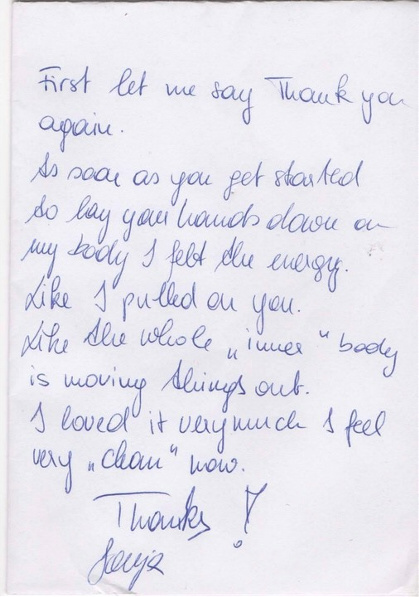 First let me say Thank you
again.
As soon as you get started
to lay your hands down on
my body I felt the energy.
Like I pulled on you.
Like the whole „inner" body
is moving things out.
I loved it very much I feel
very „clean" now.
Thanks!